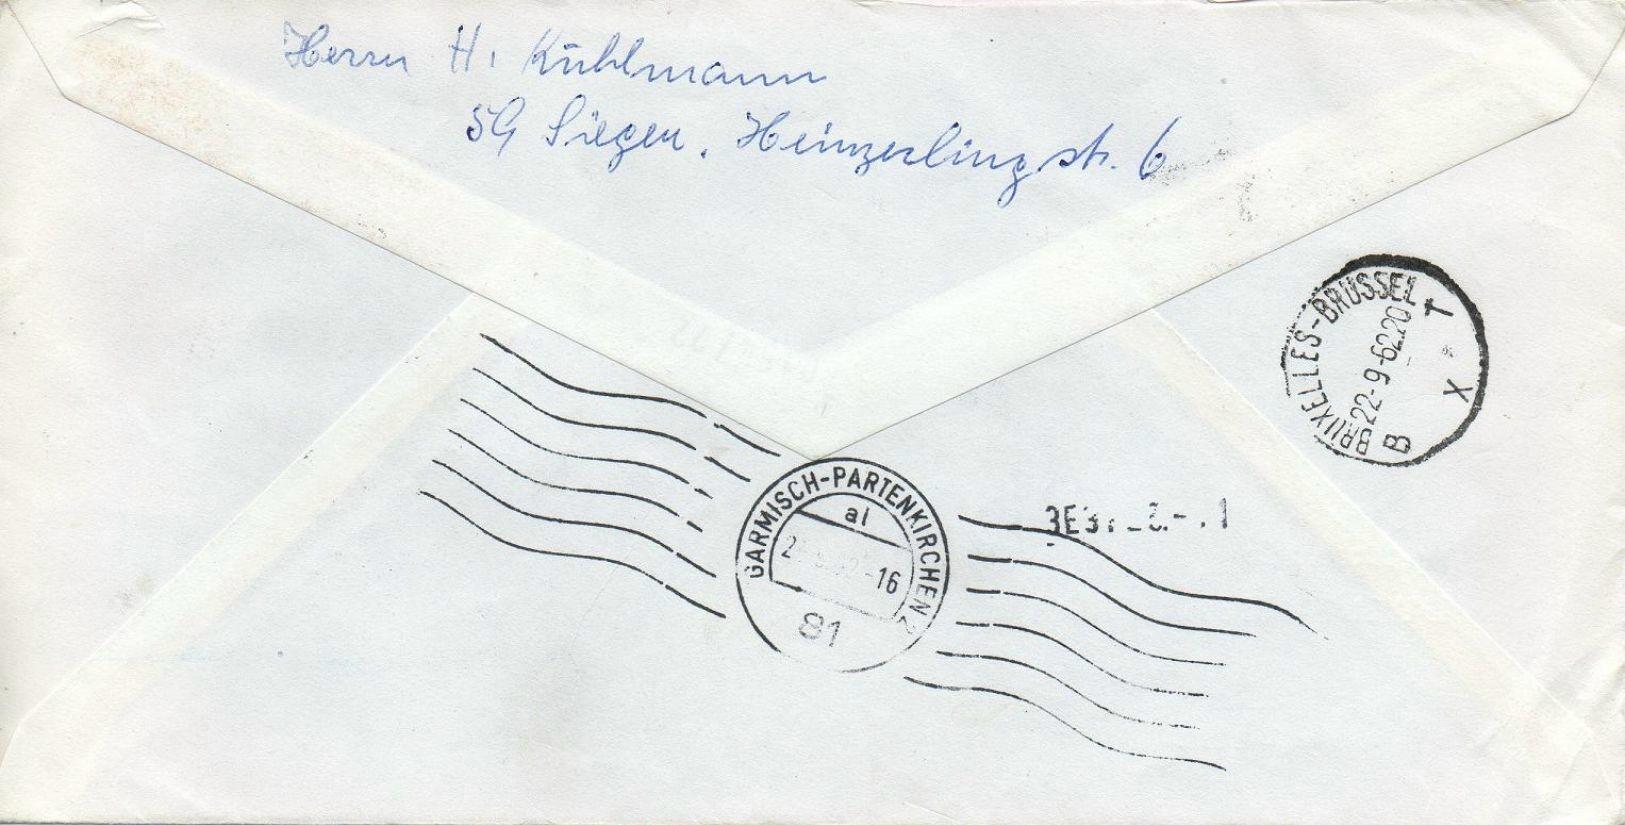 Herrn H. Kühlmann
59 Siegen, Heinzerlingstr. 6
BRUXELLES-BRUSSEL
22-9-6220
B X T
GARMISCH-PARTENKIRCHEN 2
al
-16
81